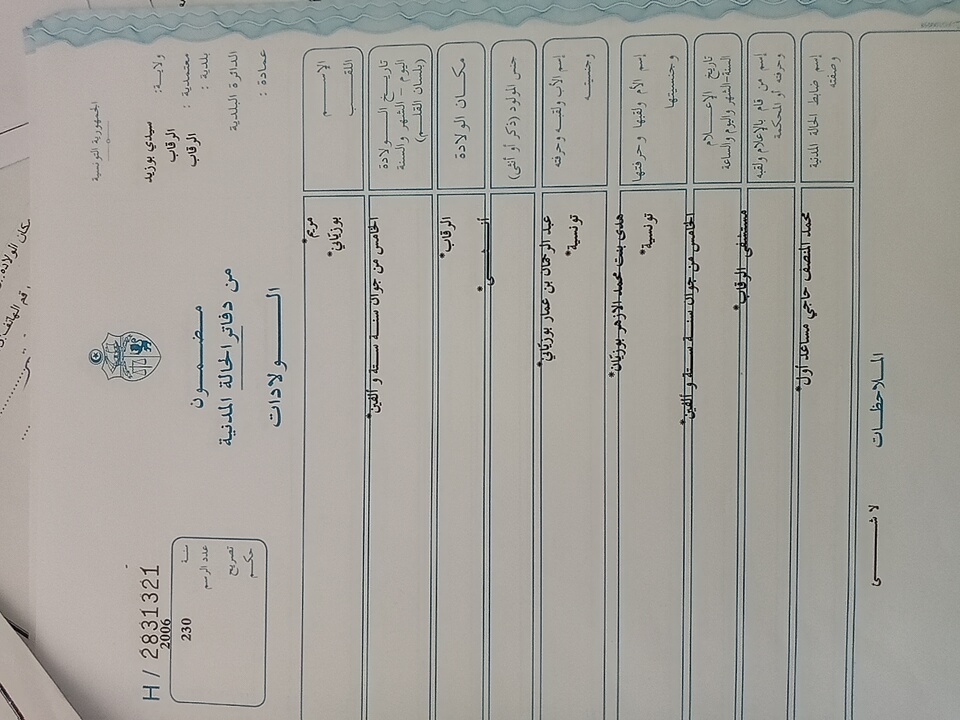 الجمهورية التونسية
ولاية: سيدي بوزيد
معتمدية : الرقاب
بلدية : الرقاب
الدائرة البلدية
عمادة :
مضمون
من دفاتر الحالة المدنية
الولادات
H / 2831321
سنة 2006
عدد الرسم 230
تصريح
حكم
الإسم مريم*
اللقب بوزياني*
تاريخ الولادة الخامس من جوان سنة ستة و ألفين*
اليوم - الشهر والسنة
(بلسان القلم)
مكان الولادة الرقاب*
جنس المولود (ذكر أو أنثى) أنثى*
إسم الأب ولقبه وحرفته عبد الرحمان بن عمار بوزياني*
وجنسيته تونسية*
إسم الأم ولقبها وحرفتها هدى بنت محمد الازهر بوزيان*
وجنسيتها تونسية*
تاريخ الإعلام الخامس من جوان سنة ستة و ألفين*
السنة-الشهر واليوم والساعة
إسم من قام بالإعلام ولقبه مستشفى الرقاب*
وحرفته أو المحكمة
إسم ضابط الحالة المدنية محمد المنصف حاجي مساعد أول*
وصفته
الملاحظات
لا شئ